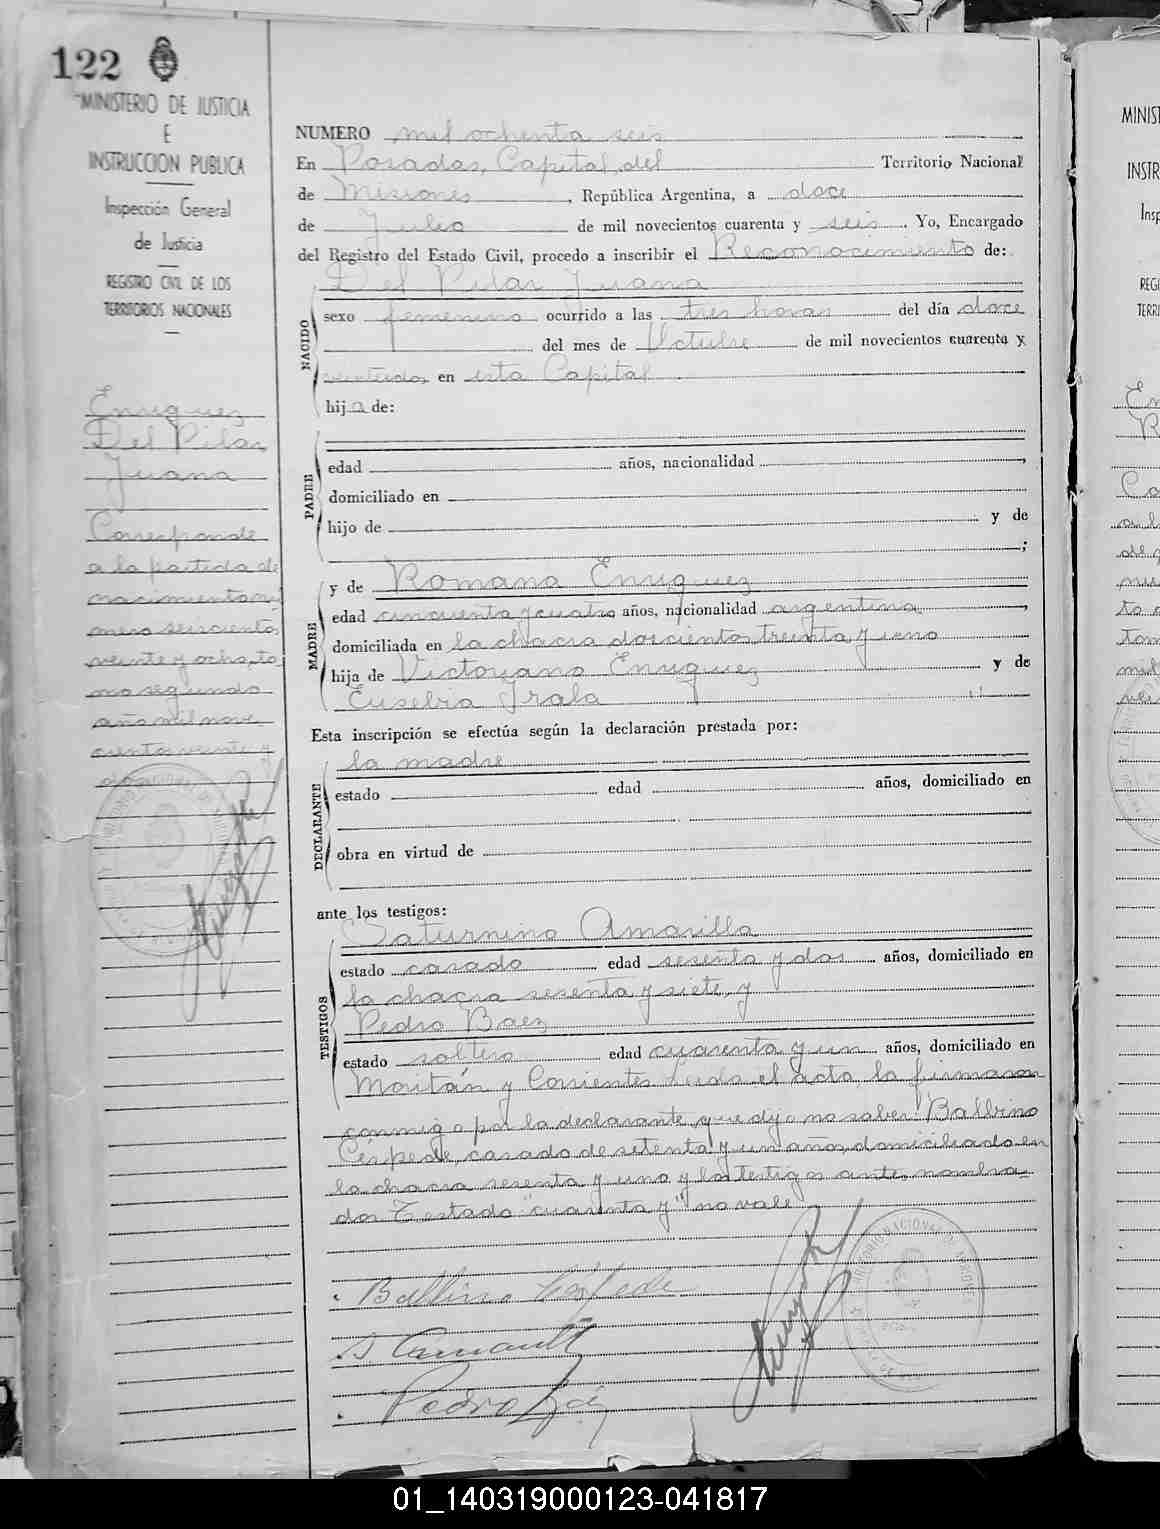 122
MINISTERIO DE JUSTICIA
E
INSTRUCCION PUBLICA
Inspección General
de Justicia
REGISTRO CIVIL DE LOS
TERRITORIOS NACIONALES
Enriquez
Del Pilar
Juana
Corresponde
a la partida de
nacimiento nú
mero seiscientos
veinte y ocho, to
mo segundo
año mil nove
cientos veinte y
dos
NUMERO mil ochenta seis
En Posadas, Capital, del Territorio Nacional
de Misiones, República Argentina, a doce
de Julio de mil novecientos cuarenta y seis. Yo, Encargado
del Registro del Estado Civil, procedo a inscribir el Reconocimiento de:
Del Pilar Juana
NACIDO
sexo femenino ocurrido a las tres horas del día doce
del mes de Octubre de mil novecientos cuarenta y
veintidos en esta Capital
hija de:
PADRE
edad años, nacionalidad ,
domiciliado en
hijo de y de
;
MADRE
y de Romana Enriquez
edad cincuenta y cuatro años, nacionalidad argentina,
domiciliada en la chacra doscientos treinta y uno
hija de Victoriano Enriquez y de
Eusebia Irala
Esta inscripción se efectúa según la declaración prestada por:
la madre
DECLARANTE
estado edad años, domiciliado en
obra en virtud de
ante los testigos:
Saturnino Amarilla
TESTIGOS
estado casado edad sesenta y dos años, domiciliado en
la chacra sesenta y siete, y
Pedro Baez
estado soltero edad cuarenta y un años, domiciliado en
Moritán y Corrientes. Leida el acta la firmaron
conmigo por la declarante, que dijo no saber Balbino
Céspede, casado de setenta y un años, domiciliado en
la chacra sesenta y uno y los testigos ante nombra-
dos Testado "cuarenta y" no vale
Balbino Céspede
S. Amarilla
Pedro Baez
01_140319000123-041817